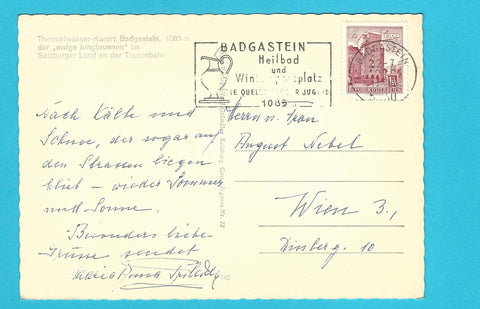 Thermalwasser-Kurort Badgastein, 1083 m
der „ewige Jungbrunnen" im
Salzburger Land an der Tauernbahn
BADGASTEIN
Heilbad
und
QUELLE
1083
BADGASTEIN
REPUBLIK ÖSTERREICH
Nach Kälte und
Schnee, der sogar auf
den Strassen liegen
blieb – wieder Sommer
und Sonne.
Besonders liebe
Grüsse sendet
Maria Anna
Herrn u. Frau
August Nebel
Wien 3.,
10